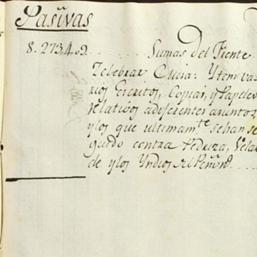 Pasivas
8. 2734.02 Sumas del Frente
Zelebrar Curia: Yten va
rios Escritos, Copias, y Papeles
relativos adiferentes asuntos
ylos que ultimam.te sehan se
guido contra
de ylos Yndios